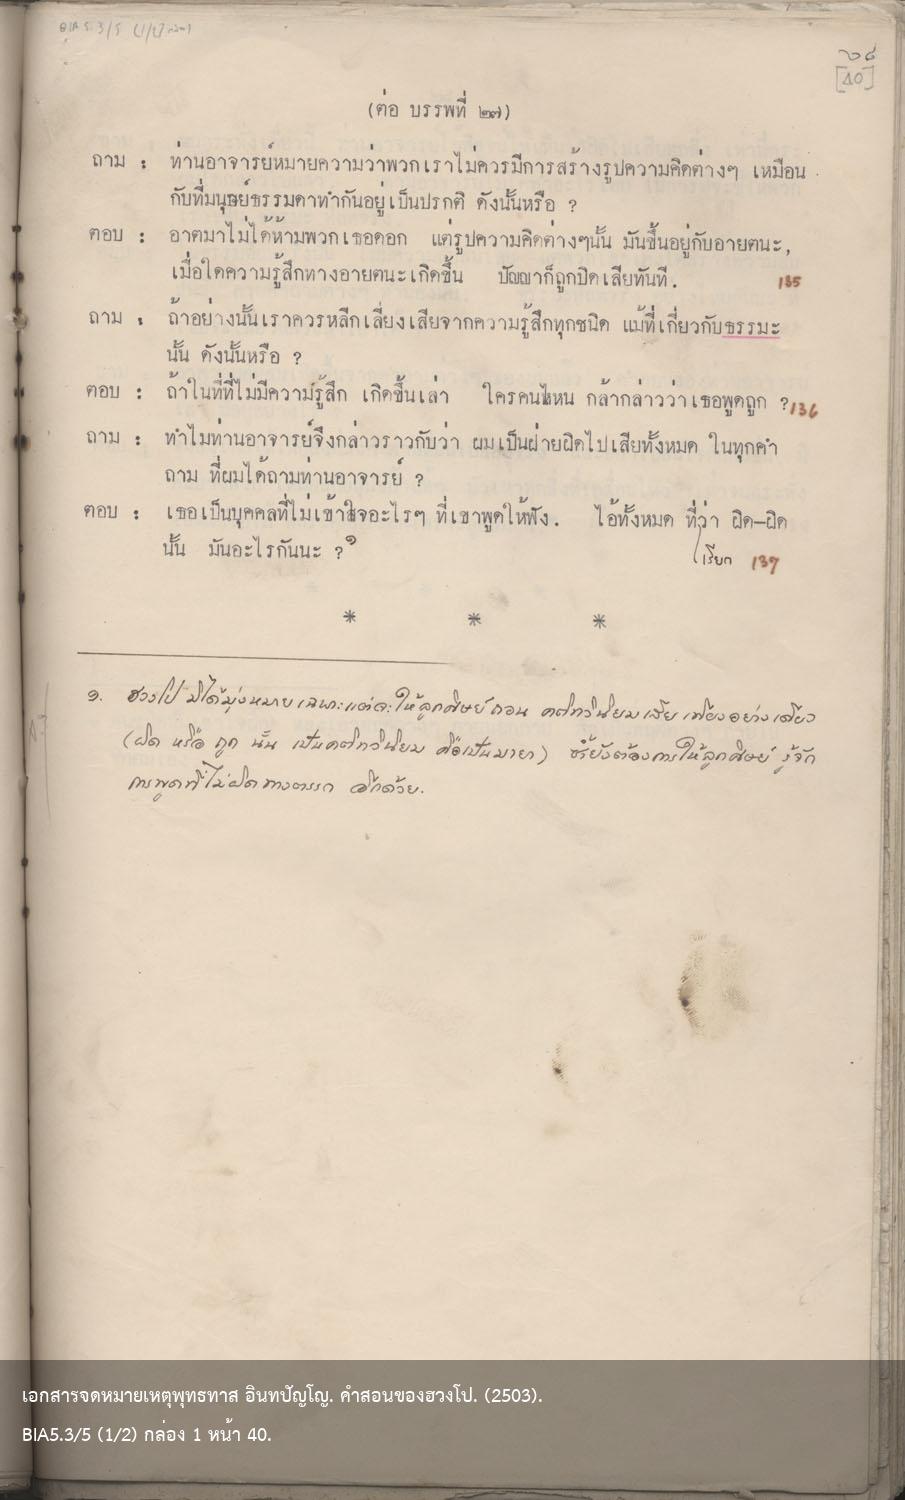 BIA 5.3/5 (1/2)
๖๘
[40]
(ต่อ บรรพที่ ๒๗)
ถาม : ท่านอาจารย์หมายความว่าพวกเราไม่ควรมีการสร้างรูปความคิดต่างๆ เหมือน
กับที่มนุษย์ธรรมดาทำกันอยู่เป็นปรกติ ดังนั้นหรือ ?
ตอบ : อาตมาไม่ได้ห้ามพวกเธอดอก แต่รูปความคิดต่างๆนั้น มันขึ้นอยู่กับอายตนะ,
เมื่อใดความรู้สึกทางอายตนะเกิดขึ้น ปัญญาก็ถูกปิดเสียทันที. 135
ถาม : ถ้าอย่างนั้นเราควรหลีกเลี่ยงเสียจากความรู้สึกทุกชนิด แม้ที่เกี่ยวกับธรรมะ
นั้น ดังนั้นหรือ ?
ตอบ : ถ้าในที่ที่ไม่มีความรู้สึก เกิดขึ้นเล่า ใครคนไหน กล้ากล่าวว่าเธอพูดถูก ? 136
ถาม : ทำไมท่านอาจารย์จึงกล่าวราวกับว่า ผมเป็นฝ่ายผิดไปเสียทั้งหมด ในทุกคำ
ถาม ที่ผมได้ถามท่านอาจารย์ ?
ตอบ : เธอเป็นบุคคลที่ไม่เข้าใจอะไรๆ ที่เขาพูดให้ฟัง. ไอ้ทั้งหมด ที่ว่า ผิด-ผิด
นั้น มันอะไรกันนะ ?๑ เรียก 137
* * *
๑. ฮวงโป มิได้มุ่งหมายเฉพาะแต่จะให้ลูกศิษย์ถอน คติทวินิยมเสีย เพียงอย่างเดียว
(ผิด หรือ ถูก นั้น เป็นคติทวินิยม คือเป็นมายา) ซ้ำยังต้องการให้ลูกศิษย์ รู้จัก
การพูดที่ไม่ผิดทางตรรก อีกด้วย.
เอกสารจดหมายเหตุพุทธทาส อินทปัญโญ. คำสอนของฮวงโป. (2503).
BIA5.3/5 (1/2) กล่อง 1 หน้า 40.